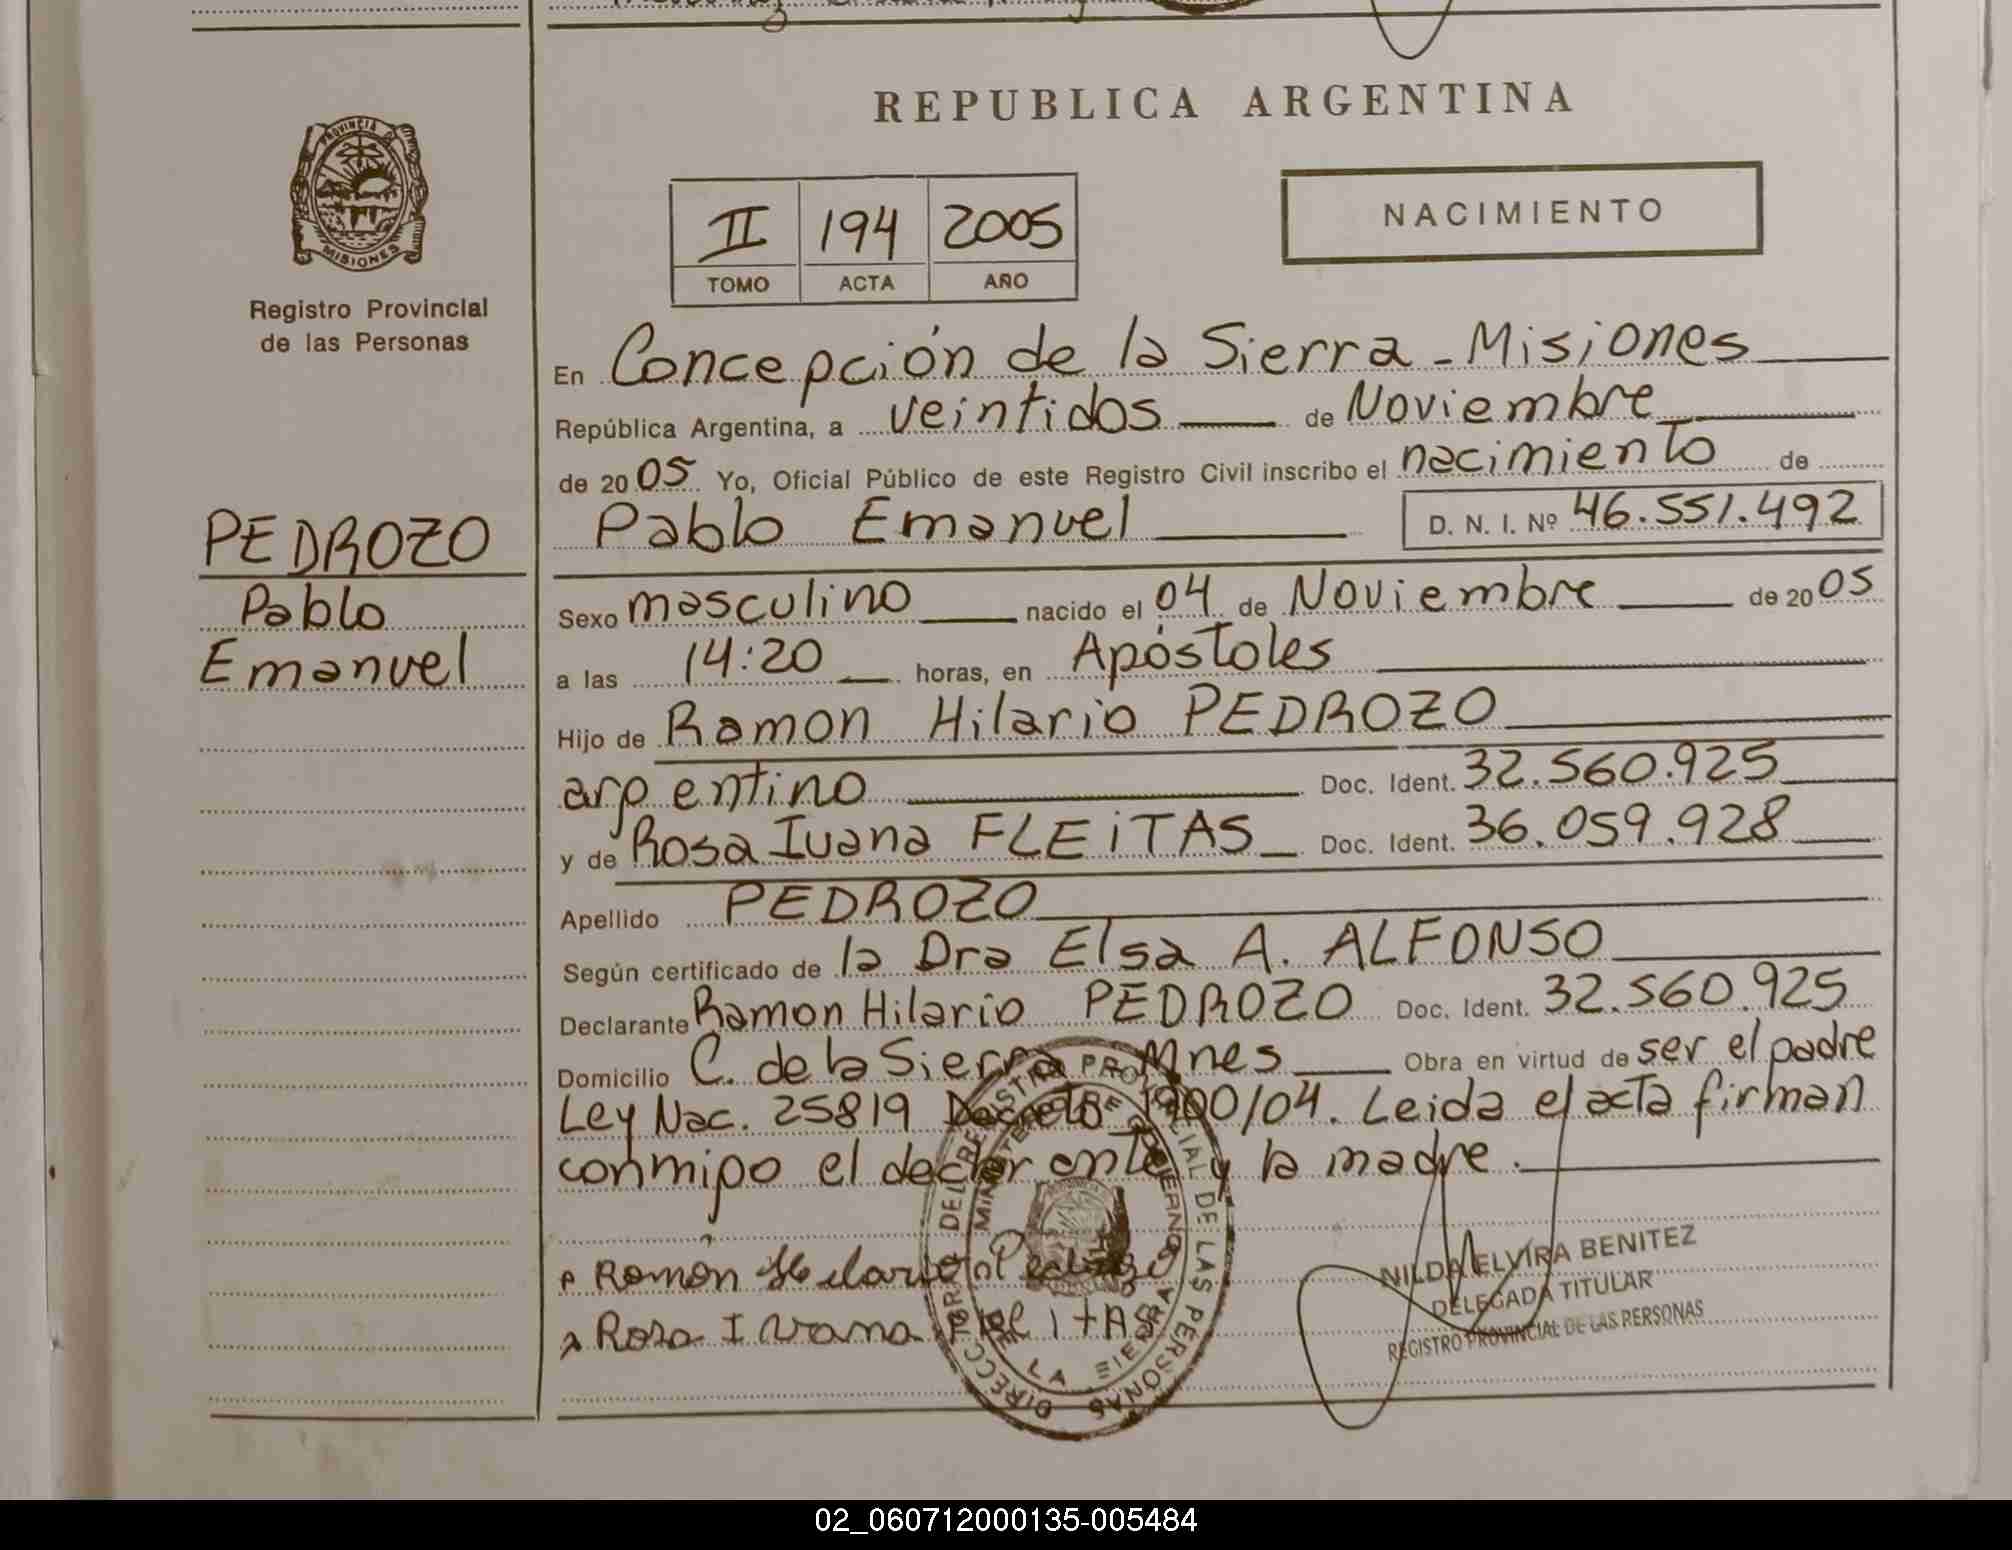 REPUBLICA ARGENTINA
PROVINCIA DE
MISIONES
Registro Provincial
de las Personas
II 194 2005
TOMO ACTA AÑO
NACIMIENTO
En Concepción de la Sierra - Misiones
República Argentina, a veintidos de Noviembre
de 2005 Yo, Oficial Público de este Registro Civil inscribo el nacimiento de
PEDROZO
Pablo
Emanuel
Pablo Emanuel D. N. I. Nº 46.551.492
Sexo masculino nacido el 04 de Noviembre de 2005
a las 14:20 horas, en Apóstoles
Hijo de Ramon Hilario PEDROZO
argentino Doc. Ident. 32.560.925
y de Rosa Ivana FLEITAS Doc. Ident. 36.059.928
Apellido PEDROZO
Según certificado de la Dra Elsa A. ALFONSO
Declarante Ramon Hilario PEDROZO Doc. Ident. 32.560.925
Domicilio C. de la Sierra Mnes Obra en virtud de ser el padre
Ley Nac. 25819 Decreto 1900/04. Leida el acta firman
conmigo el declarante y la madre.
Ramón Hilario Pedrozo
Rosa Ivana FleitAS
DIRECCION DEL REGISTRO PROVINCIAL DE LAS PERSONAS
MINISTERIO DE GOBIERNO
DE LA SIERRA
NILDA ELVIRA BENITEZ
DELEGADA TITULAR
REGISTRO PROVINCIAL DE LAS PERSONAS
02_060712000135-005484